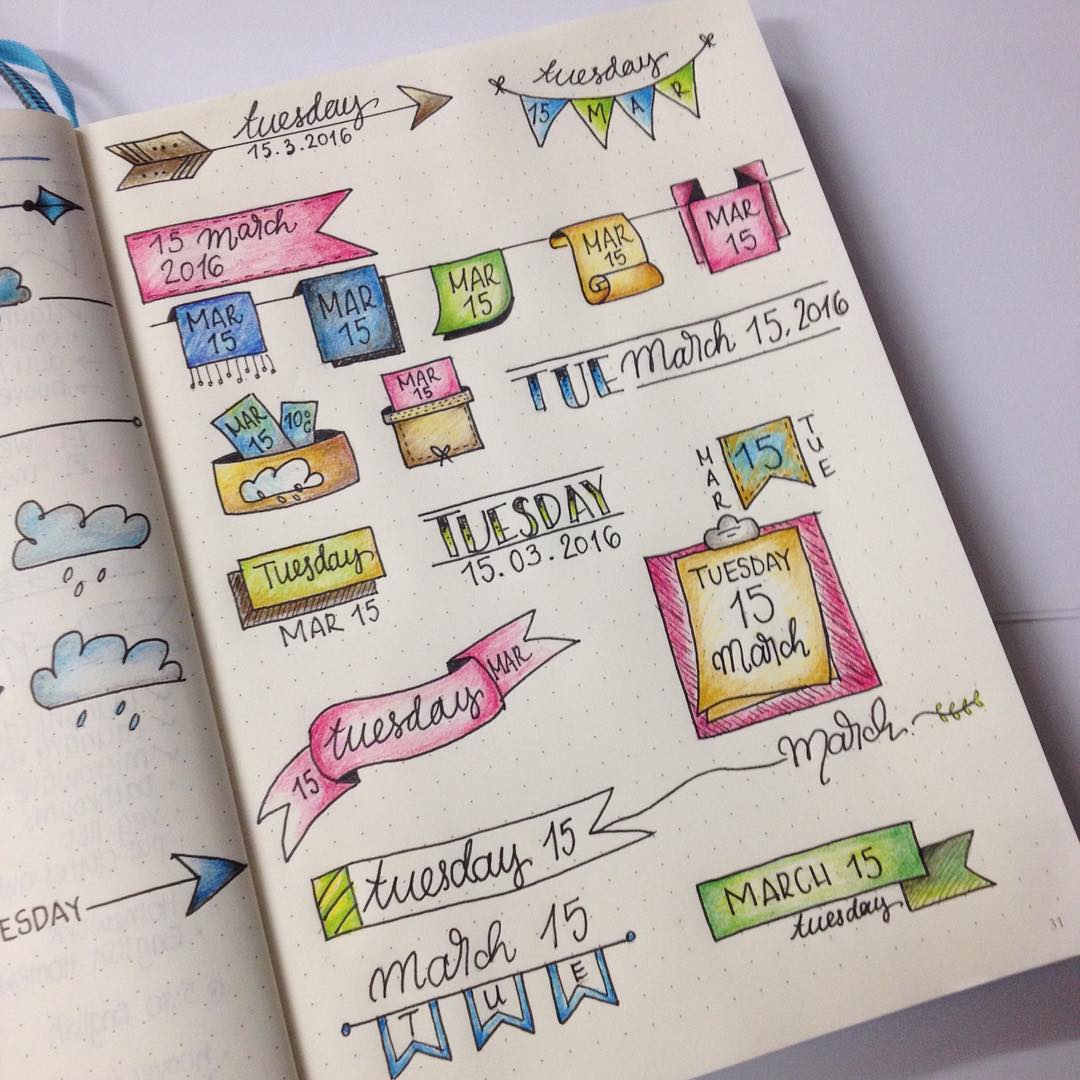 tuesday
15.3.2016
tuesday
15 MAR
15 march
2016
MAR
15
MAR
15
MAR
15
MAR
15
MAR
15
TUE March 15, 2016
MAR
15
10°C
MAR
15
MAR
15
TUE
TUESDAY
15.03.2016
Tuesday
MAR 15
TUESDAY
15
March
15 tuesday MAR
March
tuesday 15
MARCH 15
tuesday
March 15
TUE
31
ESDAY